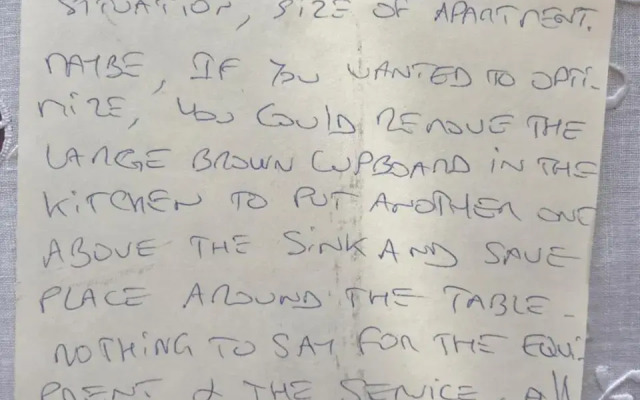 SITUATION, SIZE OF APARTMENT.
MAYBE, IF YOU WANTED TO OPTI-
MIZE, YOU COULD REMOVE THE
LARGE BROWN CUPBOARD IN THE
KITCHEN TO PUT ANOTHER ONE
ABOVE THE SINK AND SAVE
PLACE AROUND THE TABLE_
NOTHING TO SAY FOR THE EQUI-
PMENT & THE SERVICE. All